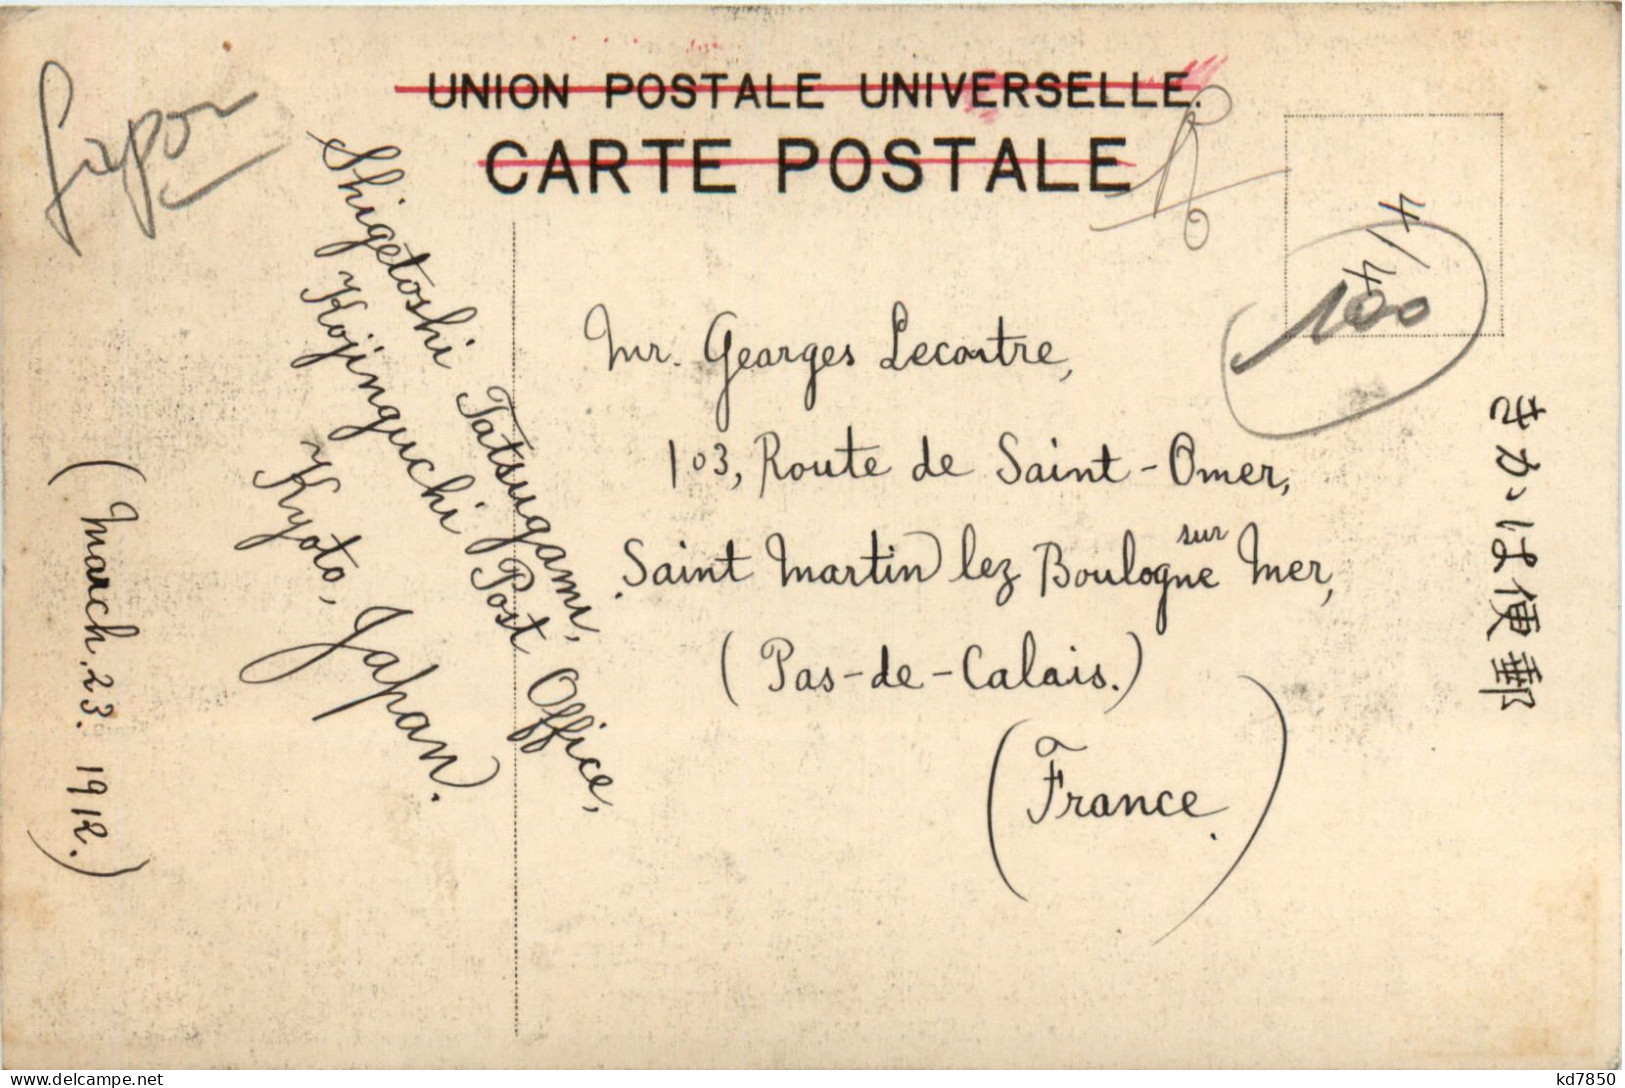 UNION POSTALE UNIVERSELLE.
CARTE POSTALE
Japon
Shigetoshi Tatsugami,
Kojinguchi Post Office,
Kyoto, Japan.
(March. 23. 1912.)
4/4
100
Mr. Gearges Lecontre,
103, Route de Saint-Omer,
Saint Martin lez Boulogne sur Mer,
(Pas-de-Calais.)
(France.)
きかは便郵
kd7850